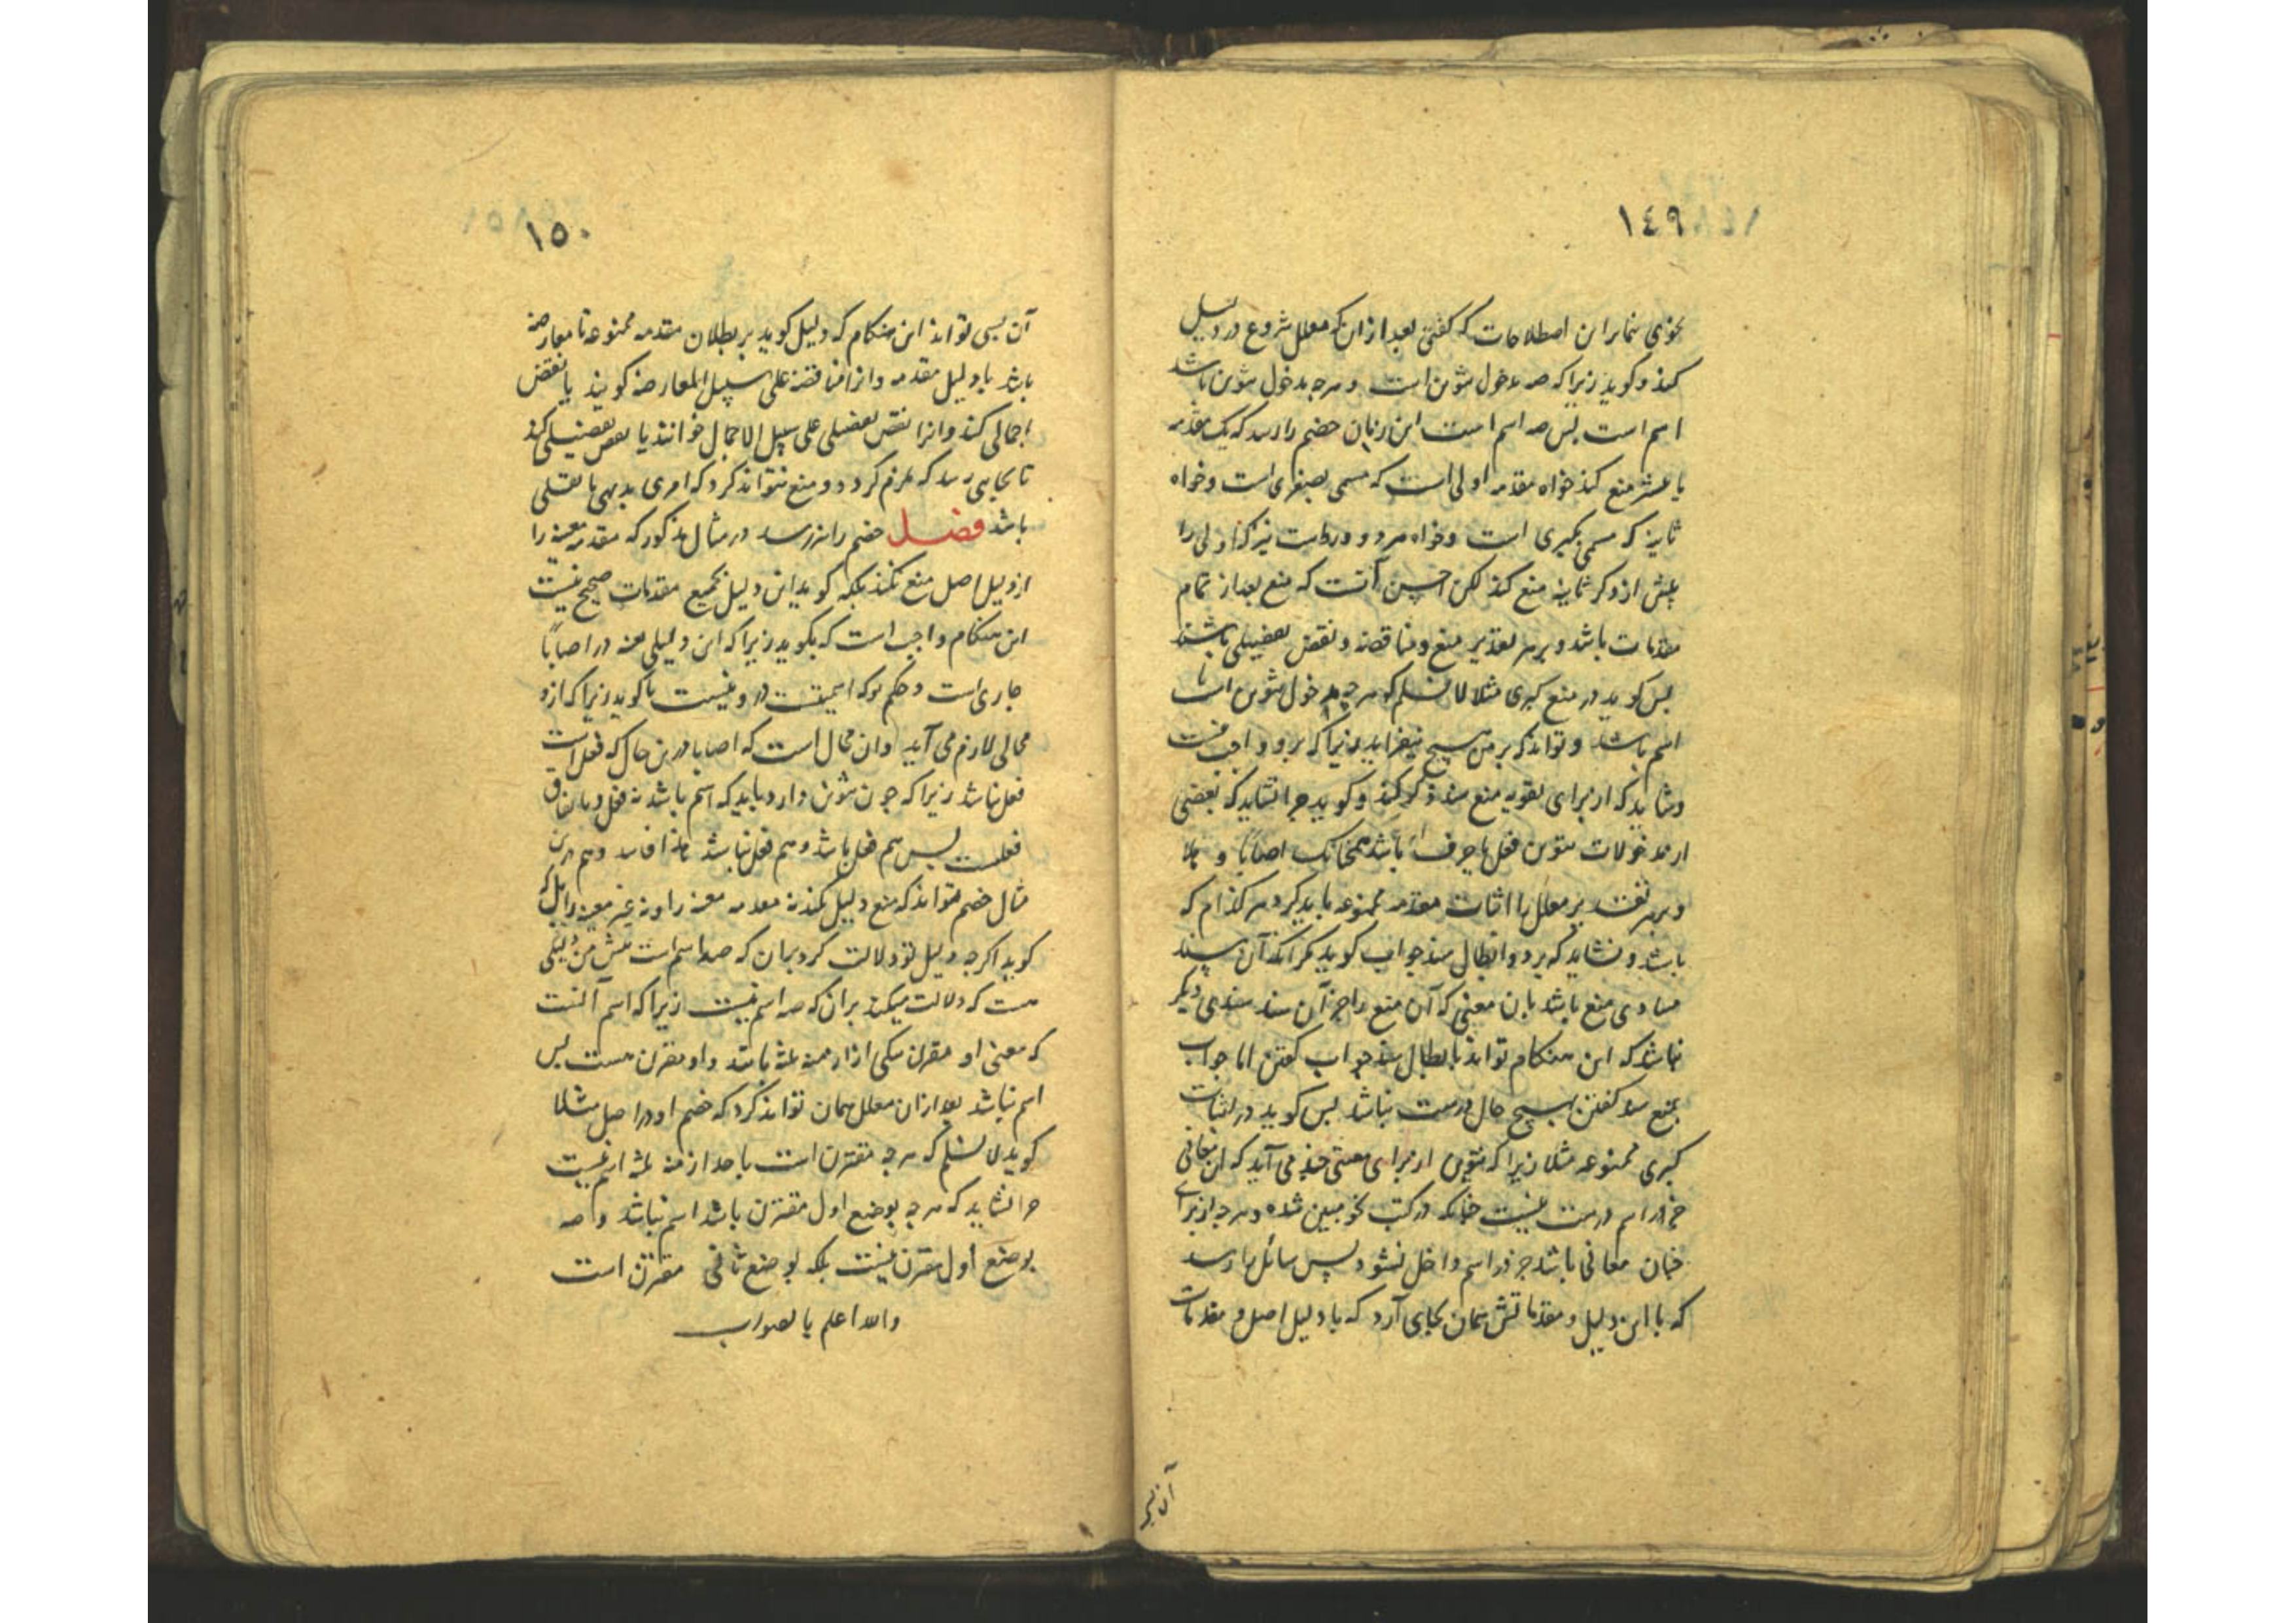 ١٤٩
نحوی بنابر این اصطلاحات که گفتی بعد از آن که معلل شروع در دلیل
کند و گوید زیرا که صه مدخول تنوین است و هرچه مدخول تنوین باشد
اسم است پس صه اسم است این زمان خصم را رسد که یک مقدمه
منع کند خواه مقدمه اولی است که مسمی بصغری است و خواه
ثانیه که مسمی بکبری است و خواه هر دو و درست نیز که اولی را
پیش از ذکر ثانیه منع کند لکن احسن آنست که منع بعد از تمام
مقدمات باشد و بر هر تقدیر منع و مناقضه و نقض تفصیلی باشد
پس گوید در منع کبری مثلا لا نسلم که هرچه مدخول تنوین است
اسم باشد و تواند که برین هیچ نیفزاید زیرا که برو واجب نیست
و شاید که از برای تقویه منع سند ذکر کند و گوید چرا نشاید که بعضی
از مدخولات تنوین فعل یا حرف باشد همچنانک اصابا و
و بر هر تقدیر معلل را اثبات مقدمه ممنوعه باید کرد هر کدام که
باشد و نشاید که برد و ابطال سند جواب گوید مگر آنکه آن سند
مساوی منع باشد بان معنی که آن منع را جز آن سند سندی دیگر
نباشد که این هنگام تواند بابطال سند جواب گفتن اما جواب
بمنع سند گفتن بهیچ حال درست نباشد پس گوید در اثبات
کبری ممنوعه مثلا زیرا که تنوین از برای معنی چند می آید که آن معانی
جز در اسم درست نیست چنانکه در کتب نحو مبین شده و هرچه از برای
چنان معانی باشد جز در اسم داخل نشود پس سائل را رسد
که با این دلیل و مقدماتش همان بجای آرد که با دلیل اصل و مقدمات
آن
١٥٠
آن بسی تواند این هنگام که دلیل گوید بر بطلان مقدمه ممنوعه تا معارضه
باشد با دلیل مقدمه و انرا مناقضه علی سبیل المعارضه گویند یا نقض
اجمالی کند و انرا نقض تفصیلی علی سبیل الاجمال خوانند یا نقض تفصیلی کند
تا بجایی رسد که ملزم گردد و منع نتواند کرد که امری بدیهی یا نقلی
باشد فصل خصم را نیز رسد در مثال مذکور که مقدمه معینه را
از دلیل اصل منع نکند بلکه گوید این دلیل بجمیع مقدمات صحیح نیست
این هنگام واجب است که بگوید زیرا که این دلیل بعینه در اصابا
جاری است و حکم که اسمیتست درو نیست یا گوید زیرا که ازو
محالی لازم می آید و ان محال است که اصابا درین حال که فعل است
فعل نباشد زیرا که چون تنوین دارد باید که اسم باشد نه فعل و باتفاق
فعلست پس هم فعل باشد و هم فعل نباشد هذا فاسد و هم درین
مثال خصم تواند که منع دلیل نکند نه مقدمه معینه را و نه غیر معینه را بل که
گوید اگرچه دلیل تو دلالت کرد بران که صه اسم است پیش من دلیلی
هست که دلالت میکند بران که صه اسم نیست زیرا که اسم آنست
که معنی او مقرن بیکی از ازمنه ثلثه نباشد و او مقرن هست پس
اسم نباشد بعد از ان معلل همان تواند کرد که خصم او در اصل مثلا
گوید لا نسلم که هرچه مقترن است باحد ازمنه ثلثه اسم نیست
چرا نشاید که هرچه بوضع اول مقترن باشد اسم نباشد و صه
بوضع اول مقرن نیست بلکه بوضع ثانی مقرن است
والله اعلم بالصواب